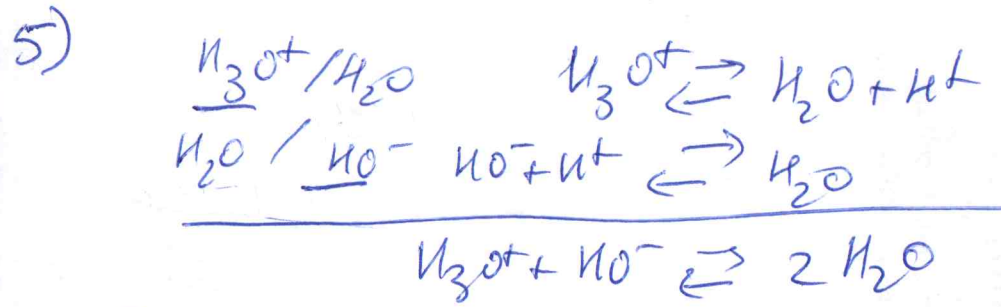 5)
H₃O⁺/H₂O H₃O⁺ ⇌ H₂O + H⁺
H₂O / HO⁻ HO⁻ + H⁺ ⇌ H₂O
H₃O⁺ + HO⁻ ⇌ 2 H₂O